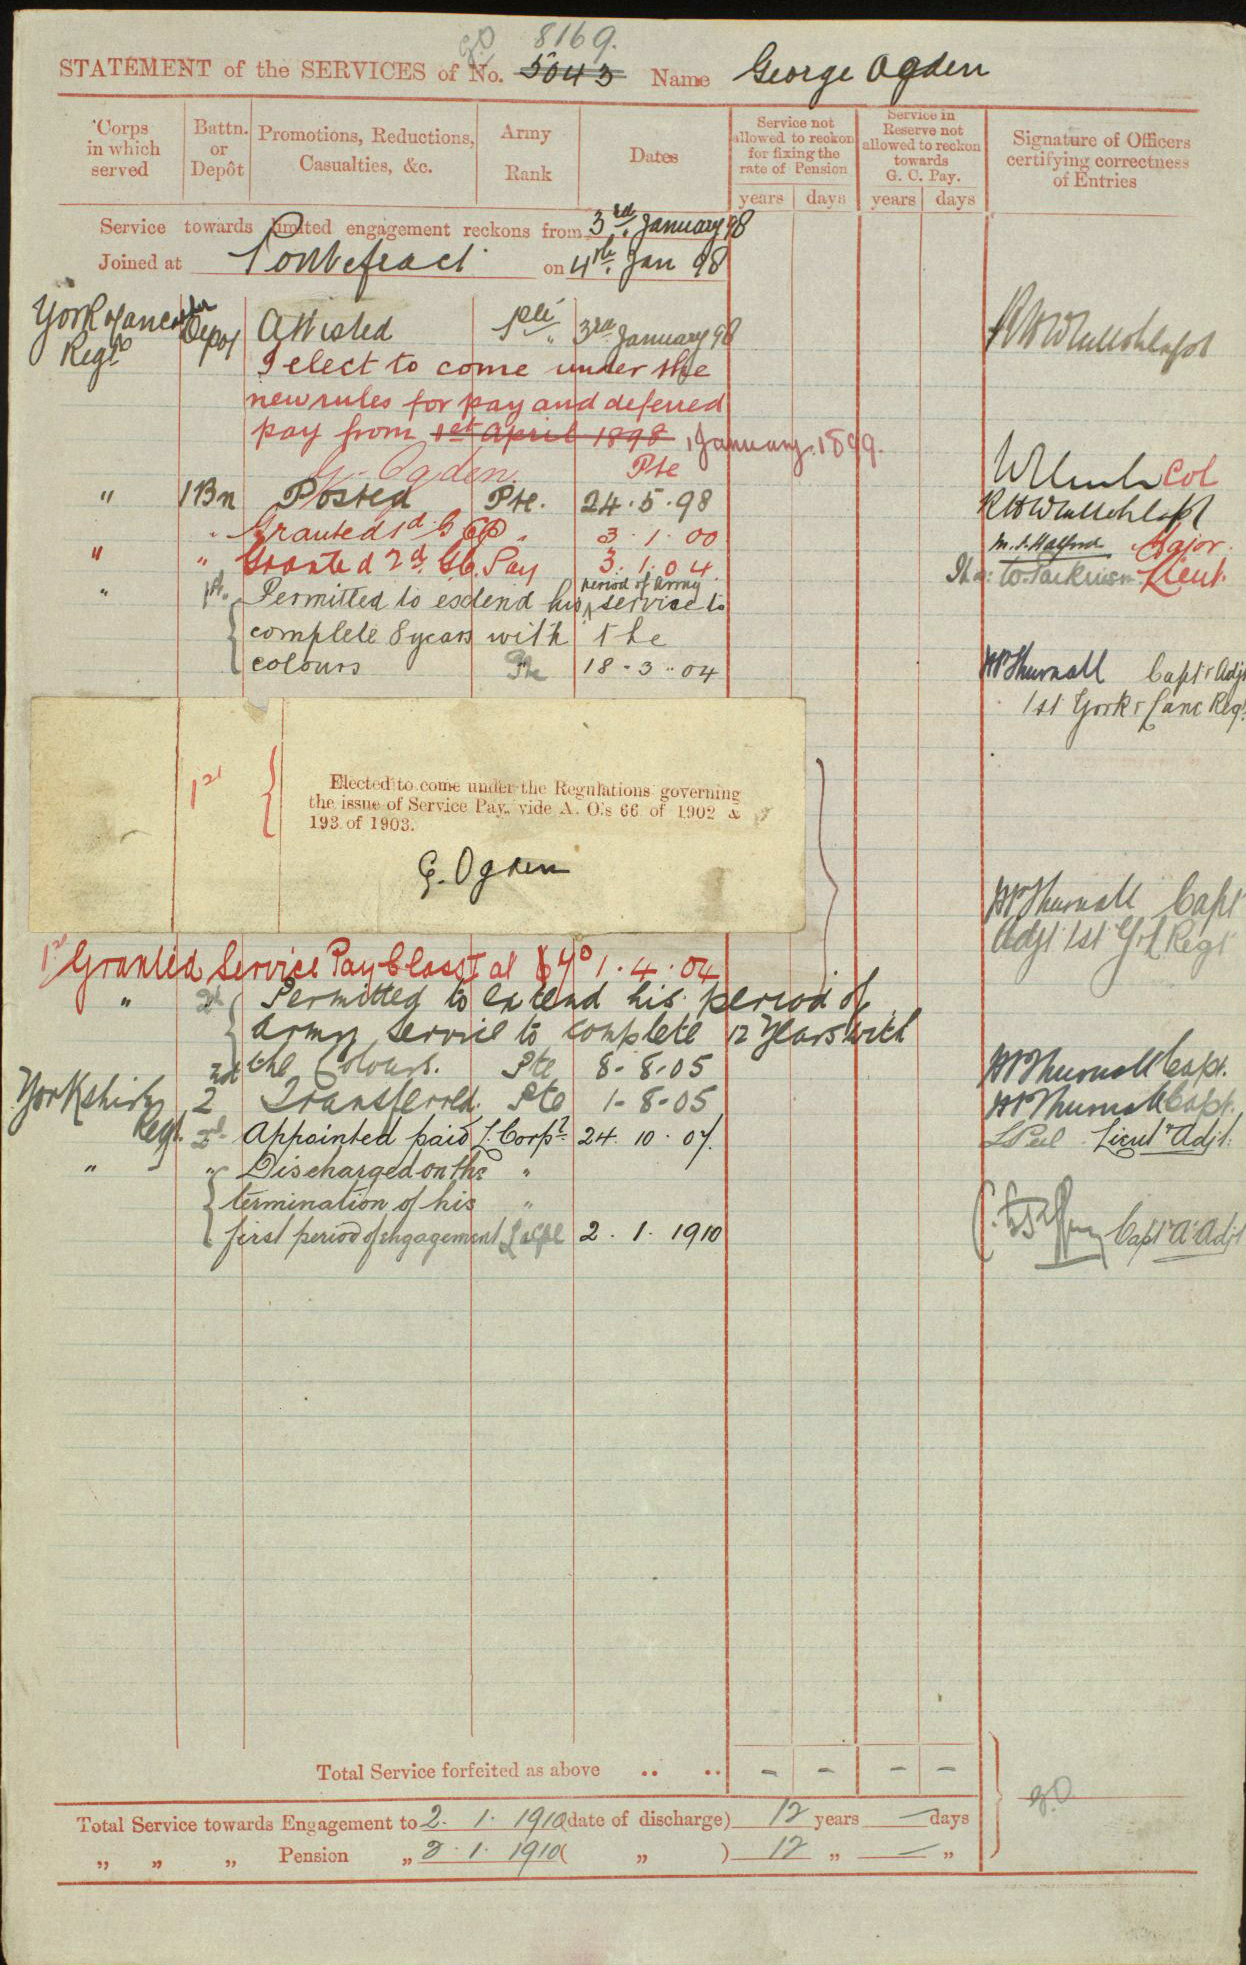 8169.
STATEMENT of the SERVICES of No. 5043 Name George Ogden
Corps in which served
Battn. or Depôt
Promotions, Reductions, Casualties, &c.
Army Rank
Dates
Service not allowed to reckon for fixing the rate of Pension
years days
Service in Reserve not allowed to reckon towards G. C. Pay.
years days
Signature of Officers certifying correctness of Entries
Service towards limited engagement reckons from 3rd January 98
Joined at Pontefract on 4th Jan 98
York & Lancaster Regt Depot Attested Pte 3rd January 98
I elect to come under the
new rules for pay and deferred
pay from 1st April 1898 1 January 1899.
G. Ogden. Pte
Col
" 1 Bn Posted Pte. 24.5.98
" Granted 1d G C P " 3.1.00
Major
" " Granted 2d. G C. Pay 3.1.04
Lieut.
" 1st. Permitted to extend his period of army service to
complete 8 years with the
colours Pte 18-3-04
H Thurnall Capt & Adjt
1st York & Lanc Regt
1st
Elected to come under the Regulations governing
the issue of Service Pay, vide A. O.'s 66 of 1902 &
193 of 1903.
G. Ogden
H Thurnall Capt
Adjt 1st Y & L Regt
1st Granted Service Pay Class I at 6d 1.4.04
" Permitted to extend his period of
army service to complete 12 Years with
the Colours. Pte 8-8-05 H Thurnall Capt.
Yorkshire Regt. 2nd Transferred Pte 1-8-05 H Thurnall Capt.
2d Appointed paid L. Corpl 24.10.07. L Peel Lieut & Adjt.
" " Discharged on the "
termination of his "
first period of engagement L Corpl 2.1.1910 Capt & A/Adjt
Total Service forfeited as above .. .. - - - -
Total Service towards Engagement to 2.1.1910 (date of discharge) 12 years — days
" " " Pension " 2.1.1910 ( " ) 12 " — "